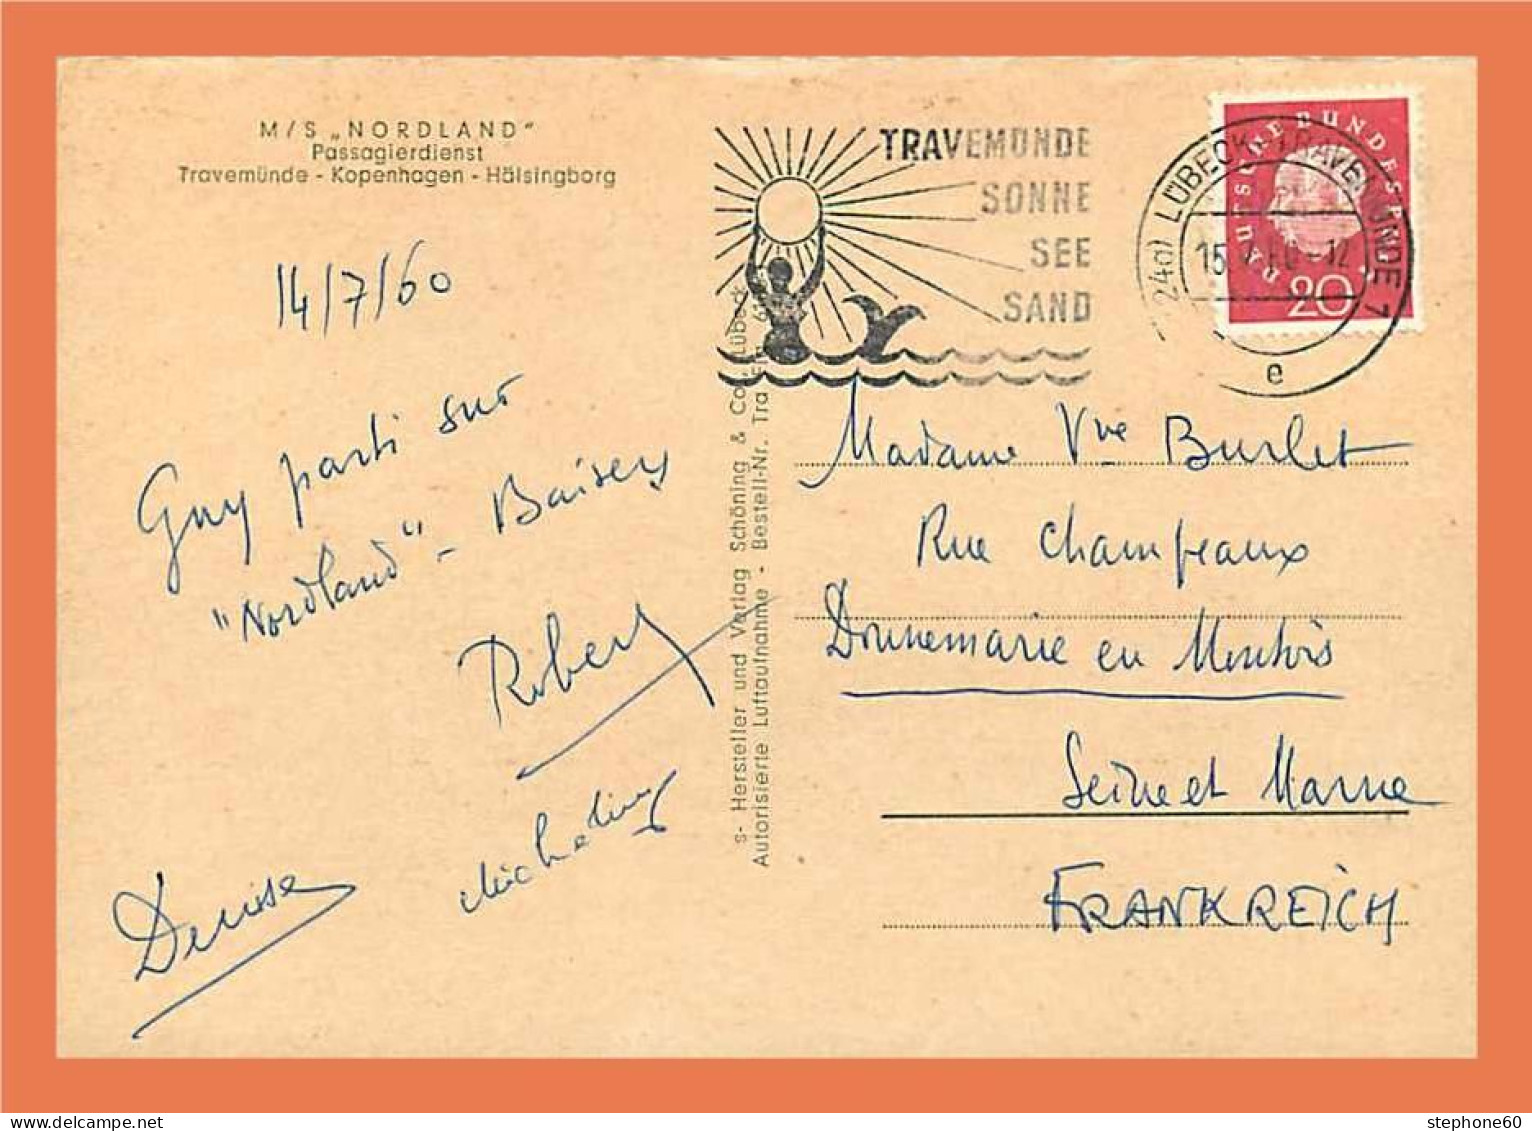 M/S „NORDLAND"
Passagierdienst
Travemünde - Kopenhagen - Hälsingborg
14/7/60
Guy parti sur
"Nordland" - Baisers
Robert
Micheline
Denise
s- Hersteller und Verlag Schöning & Co. Lübeck
Autorisierte Luftaufnahme - Bestell-Nr. Tra
TRAVEMÜNDE
SONNE
SEE
SAND
(24a) LÜBECK-TRAVEMÜNDE 1
15.7.60-12
e
DEUTSCHE BUNDESPOST
20
Madame Vve Burlet
Rue Champeaux
Donnemarie en Montois
Seine et Marne
FRANKREICH
stephone60